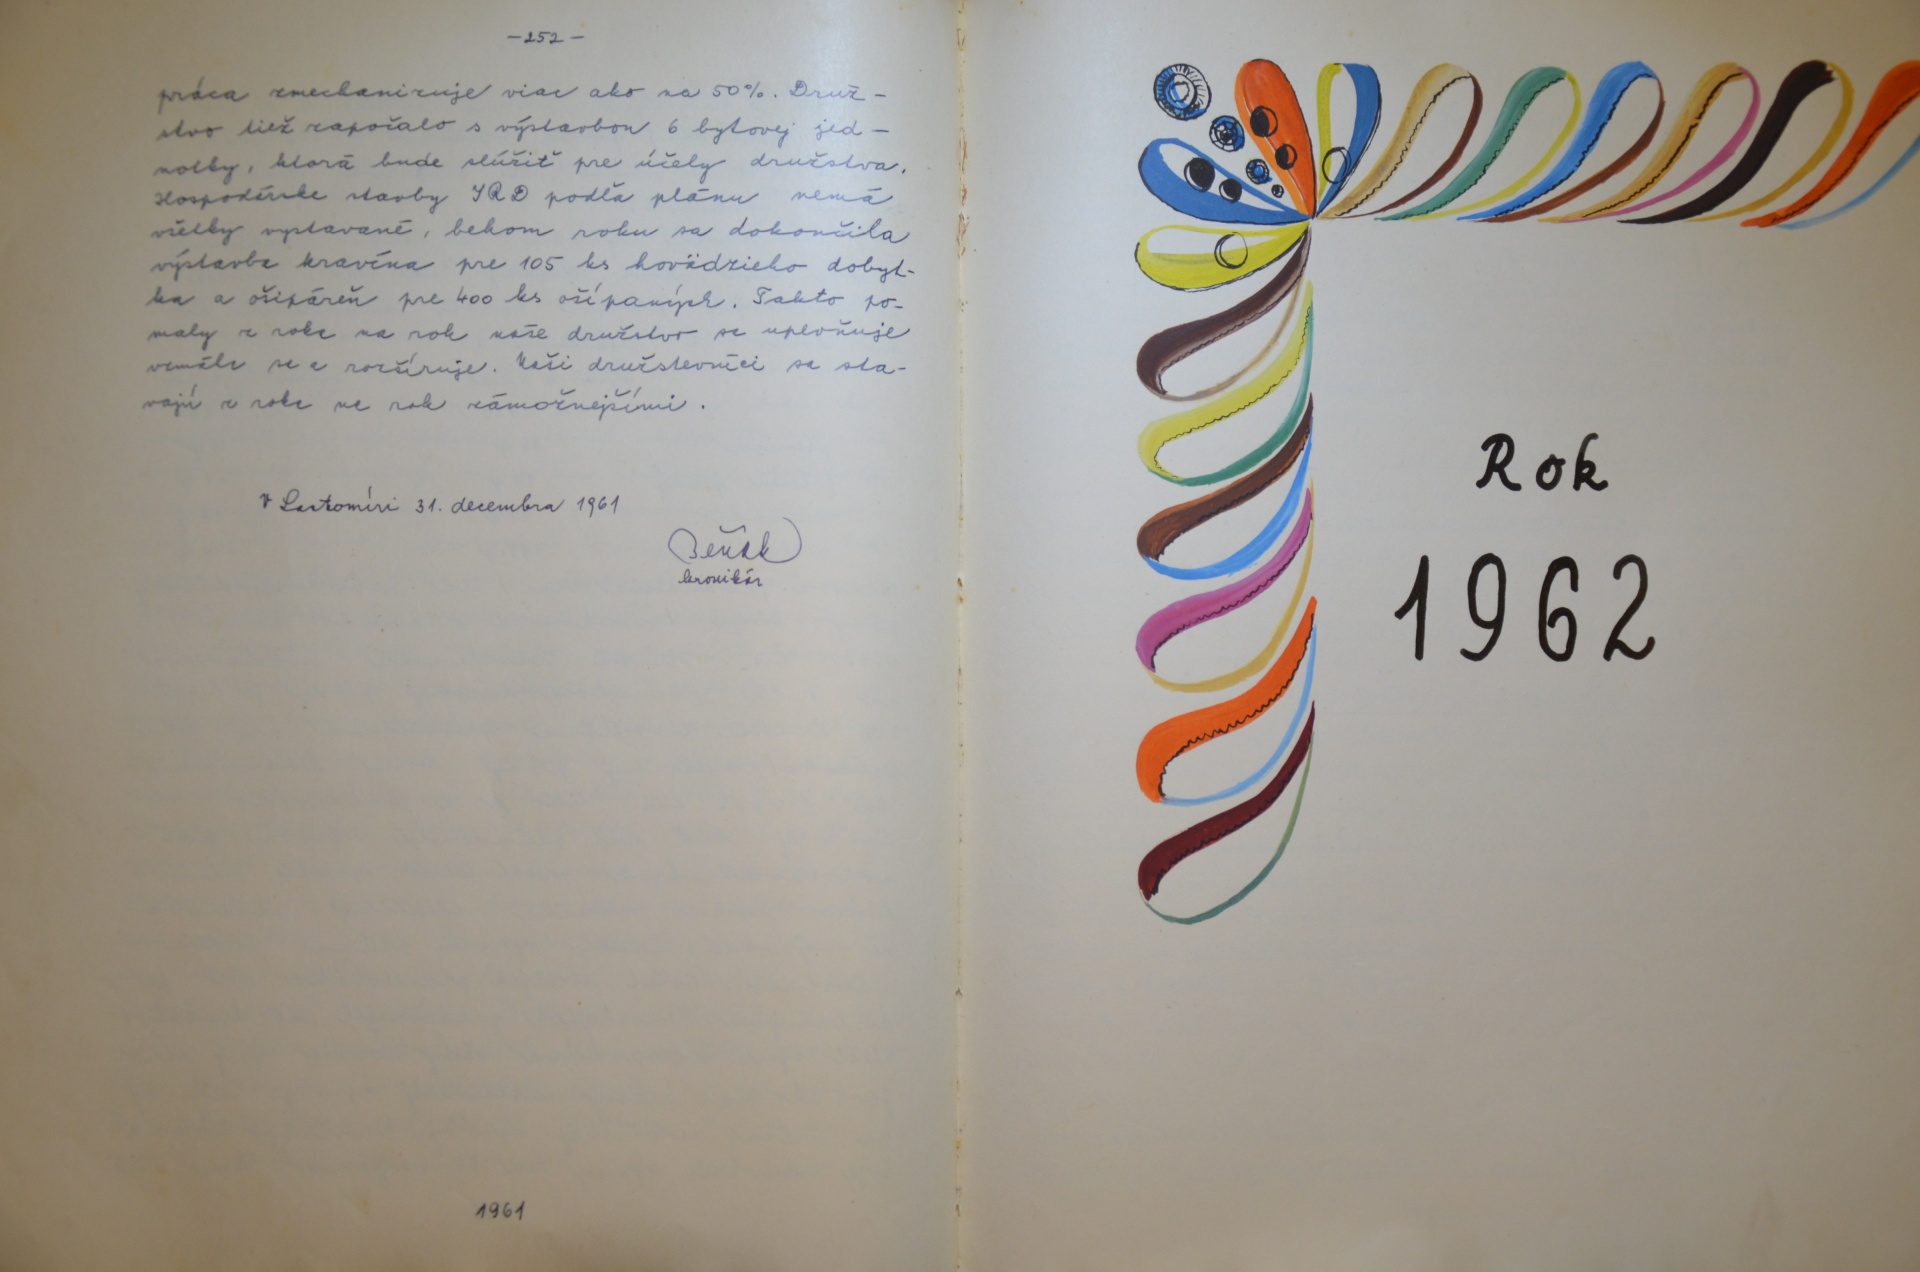 -252-
práca zmechanizuje viac ako na 50%. Druž-
stvo tiež započalo s výstavbou 6 bytovej jed-
notky, ktorá bude slúžiť pre účely družstva.
Hospodárske stavby JRD podľa plánu nemá
všetky vystavané, behom roku sa dokončila
výstavba kravína pre 105 ks hovädzieho dobyt-
ka a ošipáreň pre 400 ks ošípaných. Takto po-
maly z roka na rok naše družstvo sa upevňuje
vzmáha sa a rozširuje. Naši družstevníci sa sta-
vajú z roka na rok zámožnejšími.
V Lastomíri 31. decembra 1961
Beňák
kronikár
1961
Rok
1962